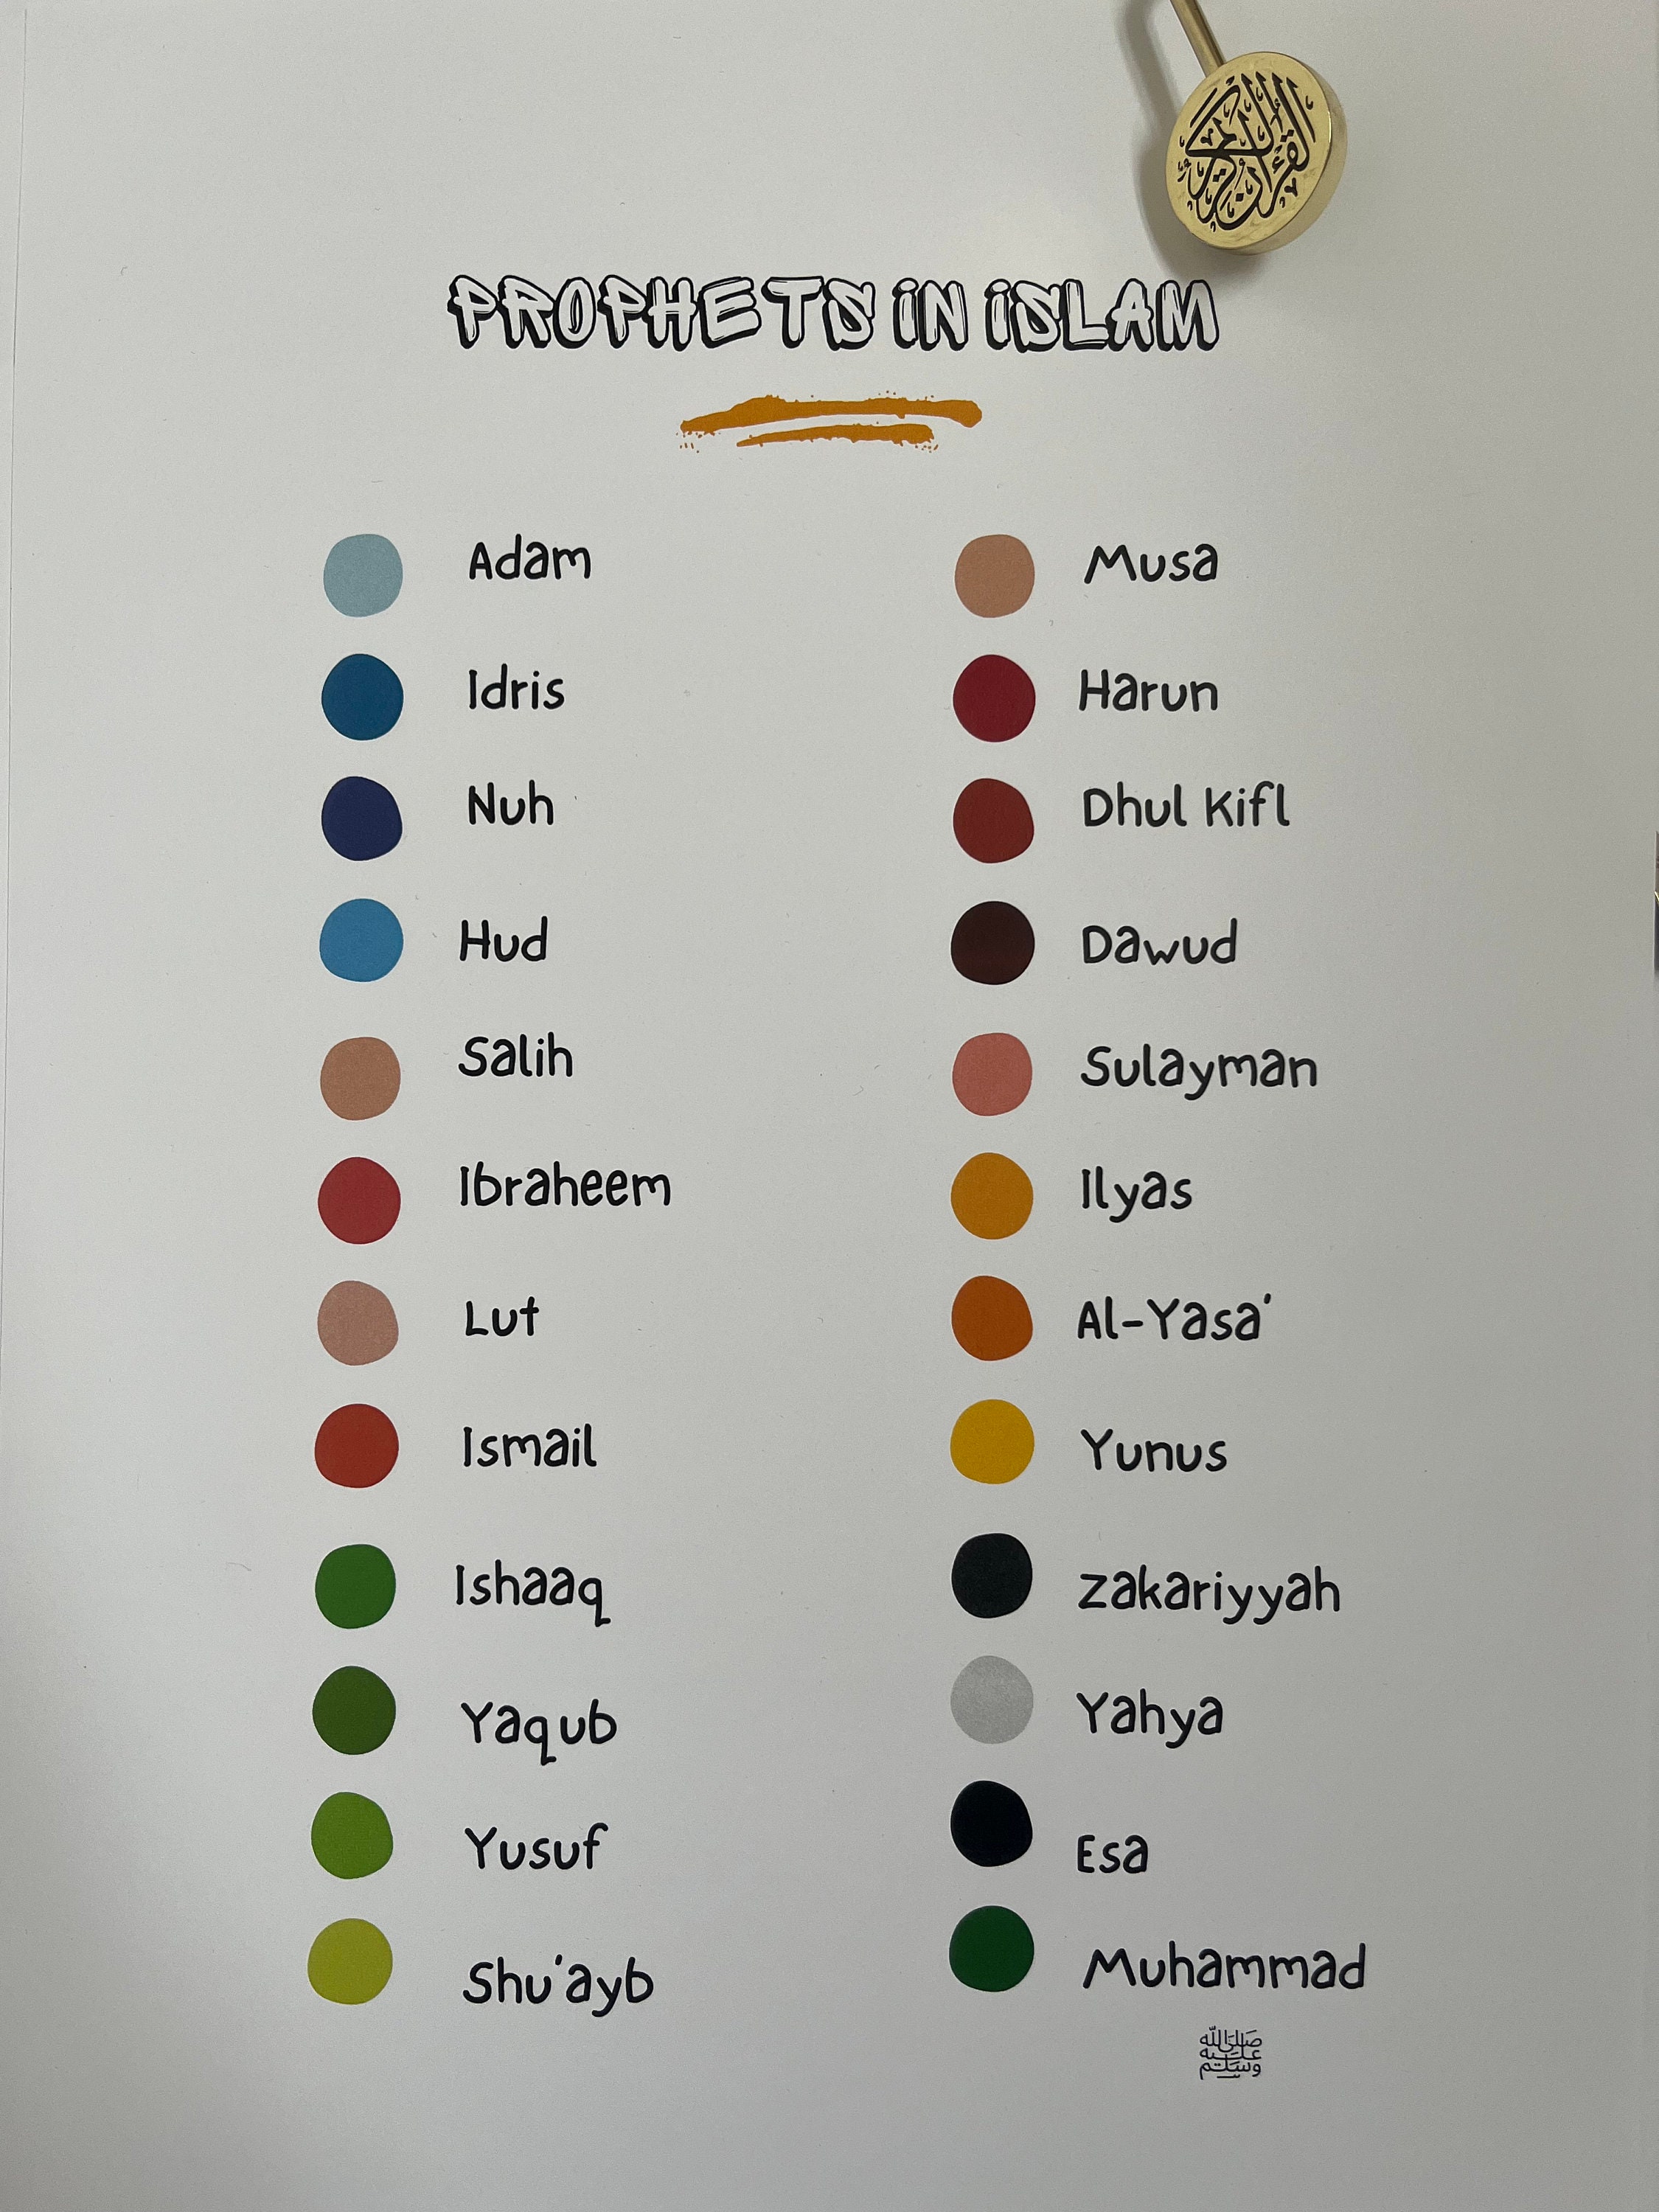 القرآن الكريم
PROPHETS IN ISLAM
Adam
Idris
Nuh
Hud
Salih
Ibraheem
Lut
Ismail
Ishaaq
Yaqub
Yusuf
Shu'ayb
Musa
Harun
Dhul Kifl
Dawud
Sulayman
Ilyas
Al-Yasa'
Yunus
Zakariyyah
Yahya
Esa
Muhammad
صلى الله
عليه
وسلم